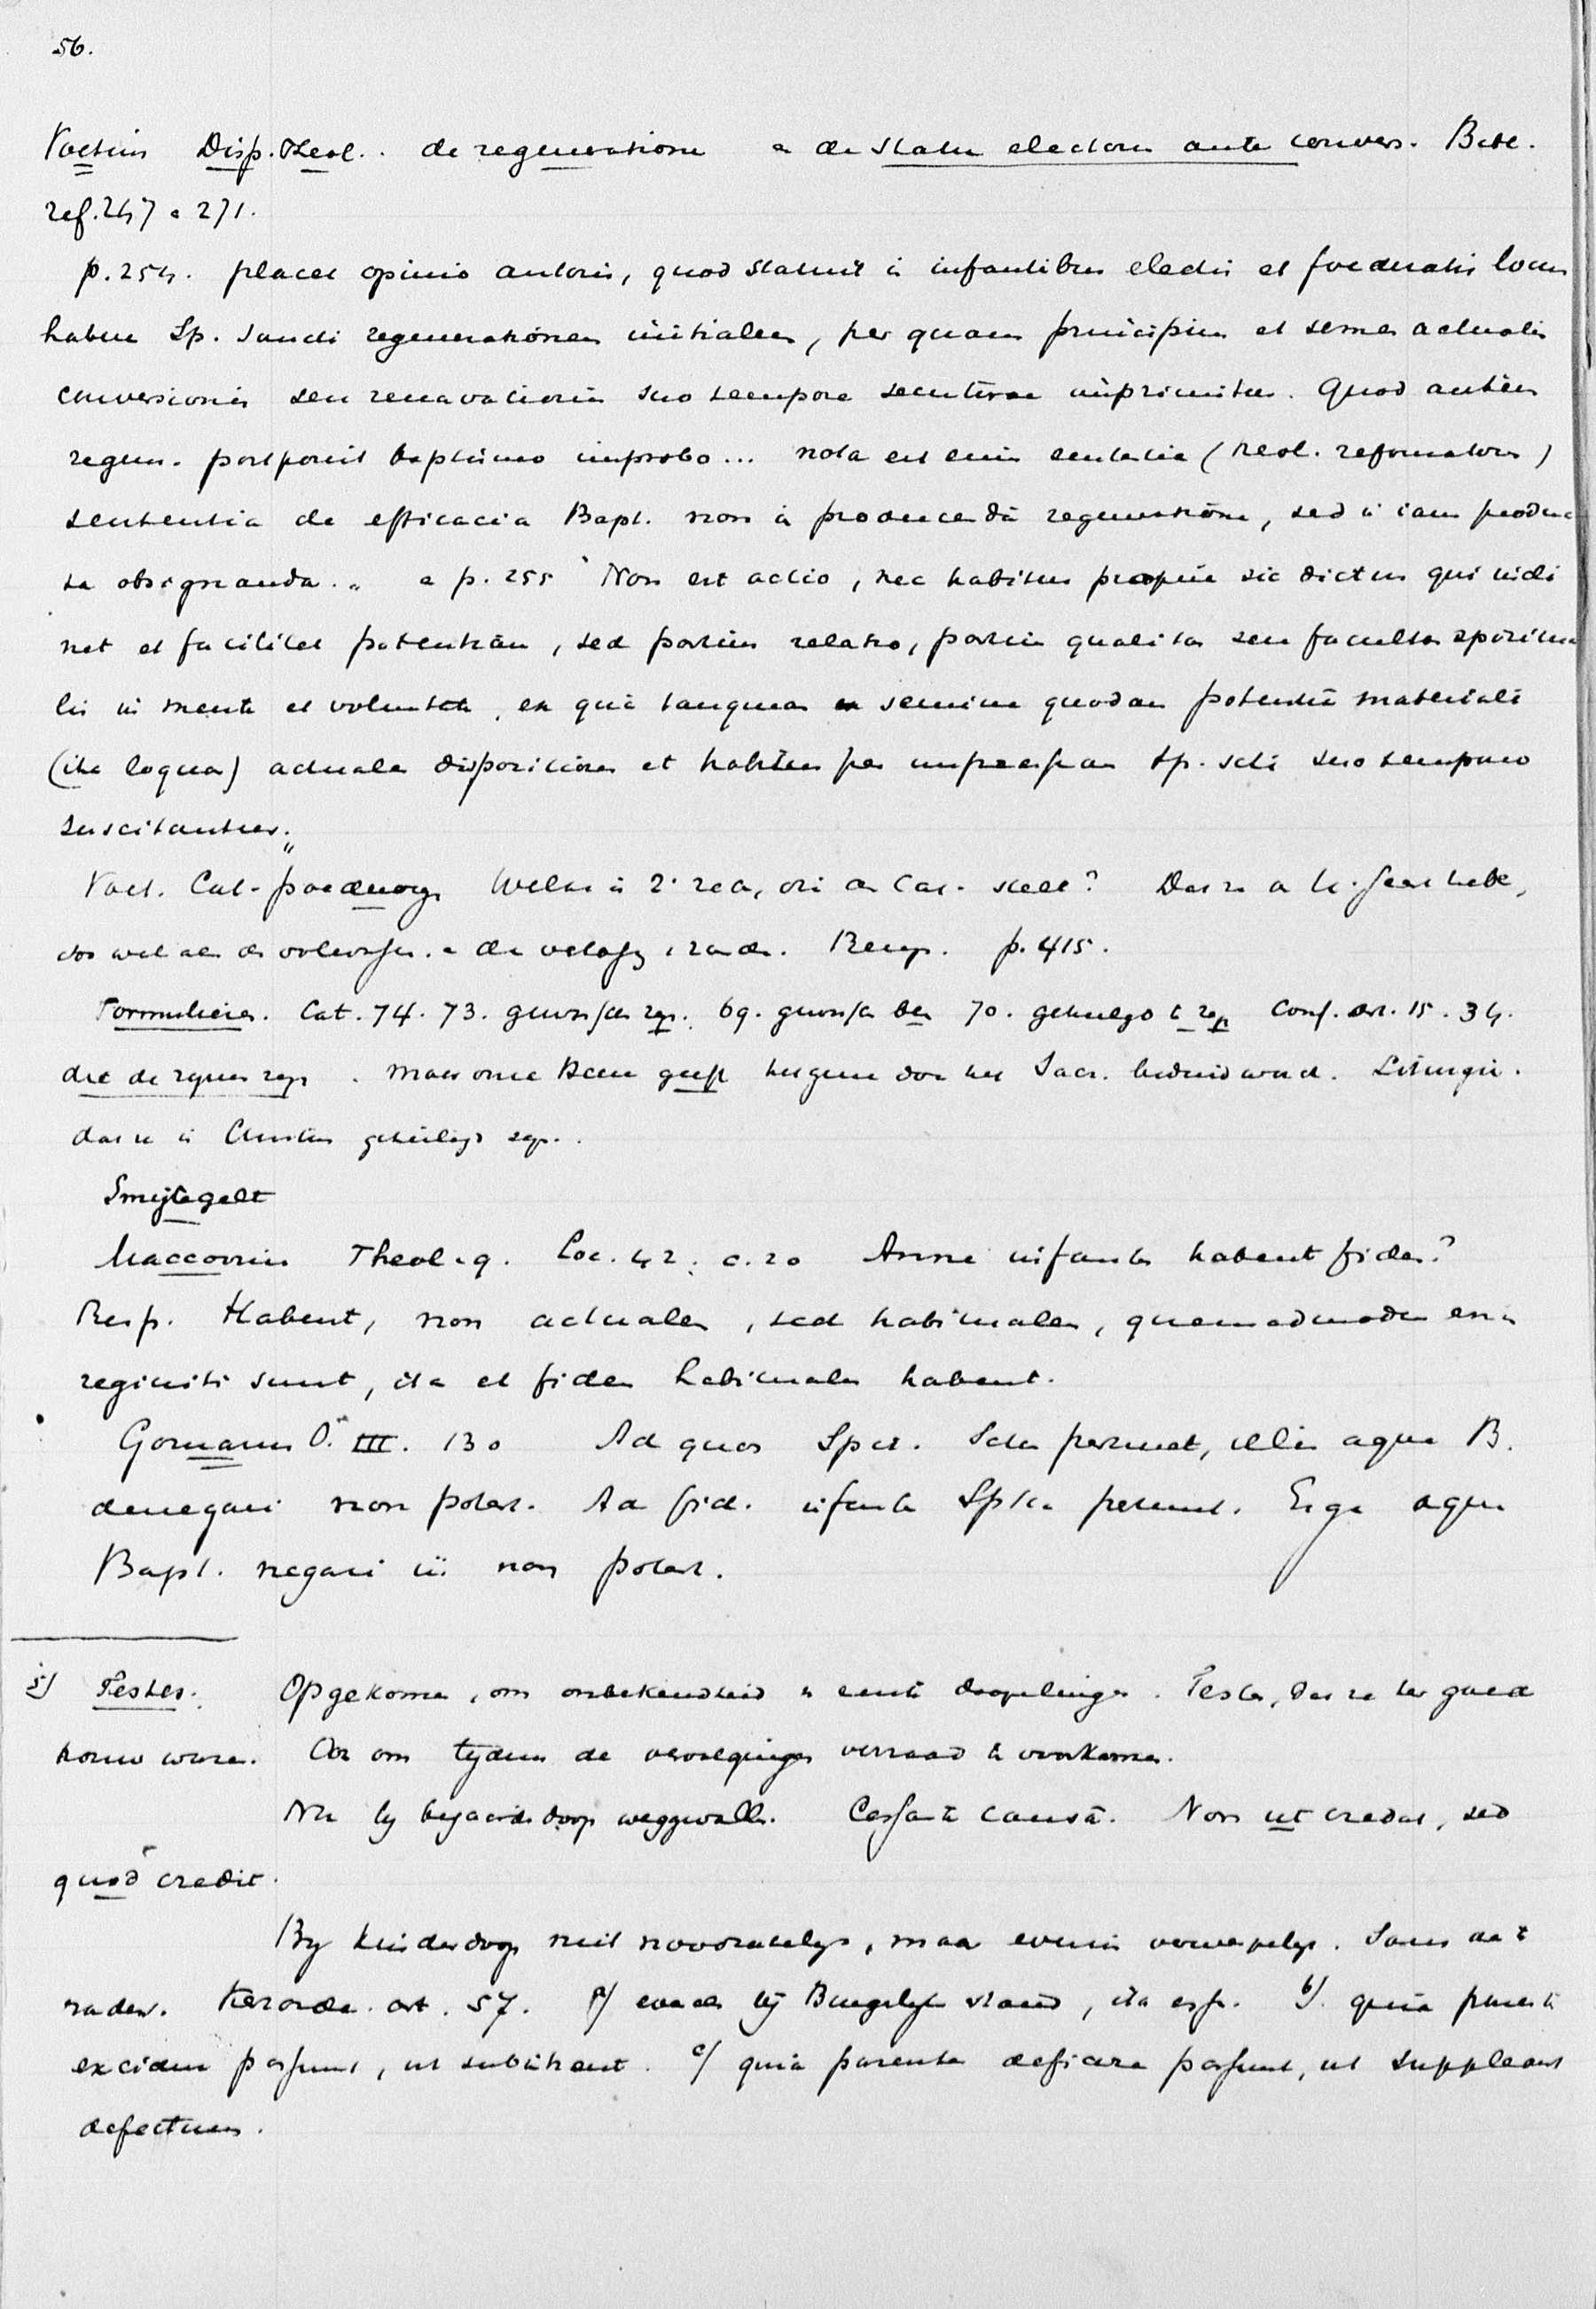 56.
Voetius Disp. Theol. . de regeneratione e de statu electorum ante convers. Bibl.
ref. 247 e 271.
p. 254. placet opinio autoris, quod statuit in infantibus electis et foederatis locum
habere Sp. Sancti regenerationem initialem, per quam principium et semen actualis
conversionis seu renovationis suo tempore secuturae imprimitur. Quod autem
regen. postponit baptismo improbo... nota est enim sententia (theol. reformatorum)
sententia de efficacia Bapt. non in producendâ regeneratione, sed in iam produc
ta obsignanda. „ e p. 255 " Non est actio, nec habitus proprie sic dictus qui incli
net et facilitet potentiam, sed partim relatio, partim qualitas seu facultas spiritua
lis in mente et voluntate, ex quâ tanquam semine quodam potentiâ materiali
(ita loquar) actuales dispositiones et habitus per Sp. Scti suo tempore
suscitantur. „
Voet. Cat. Welke is 2e rea, die Cat. stelt? Dat ze H. Geest hebb,
zoo wel als de volwassen. e de . Resp. p. 415.
Formulieren. Cat. 74. 73. gewasschen zijn. 69. gewasschen ben 70. geheiligd te zijn Conf. art. 15. 34.
die de zijnen zijn . maar onze Heere geeft hetgene door het Sacr. beduid word. Liturgie.
dat ze in Christus geheiligd zijn. .
Smijtegelt
Maccovius Theol. q. Loc. 42. c. 20 Anne infantes habent fidem?
Resp. Habent, non actualem, sed habitualem, quemadmodum enim
regeniti sunt, ita et fidem habitualem habent.
Gomarus O. III. 130 Ad quos Spir. Sctus pertinet, illis aqua B.
denegari non potest. Ad fid. infantes Sptus pertinet. Ergo aqua
Bapt. negari iis non potest.
5) Testes. Opgekomen, om onbekendheid v eerste doopelingen. Testes, dat ze ter goeder
trouw waren. Ook om tijdens de vervolgingen verraad te voorkomen.
Nu bij bejaarden doop weggevallen. Cessante causâ. Non ut credat, sed
quod credit.
By kinderdoop niet noodzakelijk, maar evenmin verwerpelijk. Soms aan te
raden. Kerkorde. art. 57. a) evenals bij Burgerlijken stand, ita esse. b). quia parentes
excidere possunt, ut substituant. c) quia parentes deficere possunt, ut suppleant
defectum.